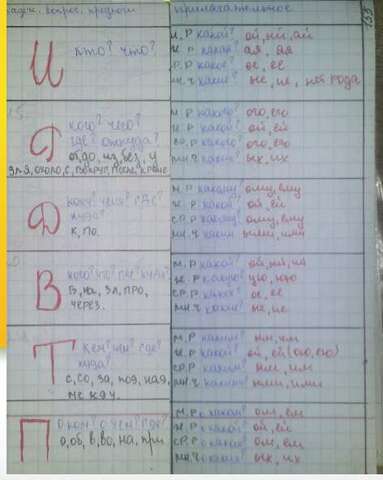 падеж, вопрос, предлоги
прилагательное
И
кто? что?
м.р какой? ой, ий, ый
ж.р какая? ая, яя
ср.р какое? ое, ее
мн.ч какие? ые, ие, нет рода
Р
кого? чего?
где? откуда?
от, до, из, без, у
для, около, с, вокруг, после, кроме
м.р какого? ого, его
ж.р какой? ой, ей
ср.р какого? ого, его
мн.ч каких? ых, их
Д
кому? чему? где?
куда?
к, по.
м.р какому? ому, ему
ж.р какой? ой, ей
ср.р какому? ому, ему
мн.ч каким ыми, ими
В
кого? что? где? куда?
В, на, за, про,
через.
м.р какой?
ж.р какую? ую, юю
ср.р какое? ое, ее
мн.ч какие? ые, ие
Т
кем? чем? где?
куда?
с, со, за, под, над,
между.
м.р каким? ым, им
ж.р какой? ой, ей (ою, ею)
ср.р каким? ым, им
мн.ч какими? ыми, ими
П
о ком? о чём? где?
о, об, в, во, на, при
м.р о каком? ом, ем
ж.р о какой? ой, ей
ср.р о каком? ом, ем
мн.ч о каких? ых, их